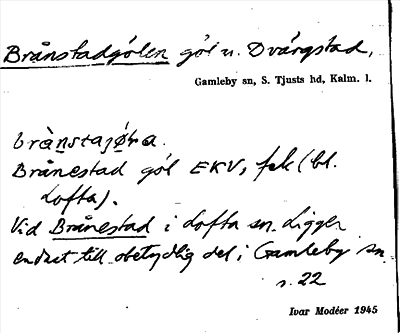 Brånstadgölen göl u. Dvärgstad,
Gamleby sn, S. Tjusts hd, Kalm. l.
Brånestad göl EKV, fek (bl.
Lofta).
Vid Brånestad i Lofta sn. Ligger
endast till obetydlig del i Gamleby sn.
s. 22
Ivar Modéer 1945